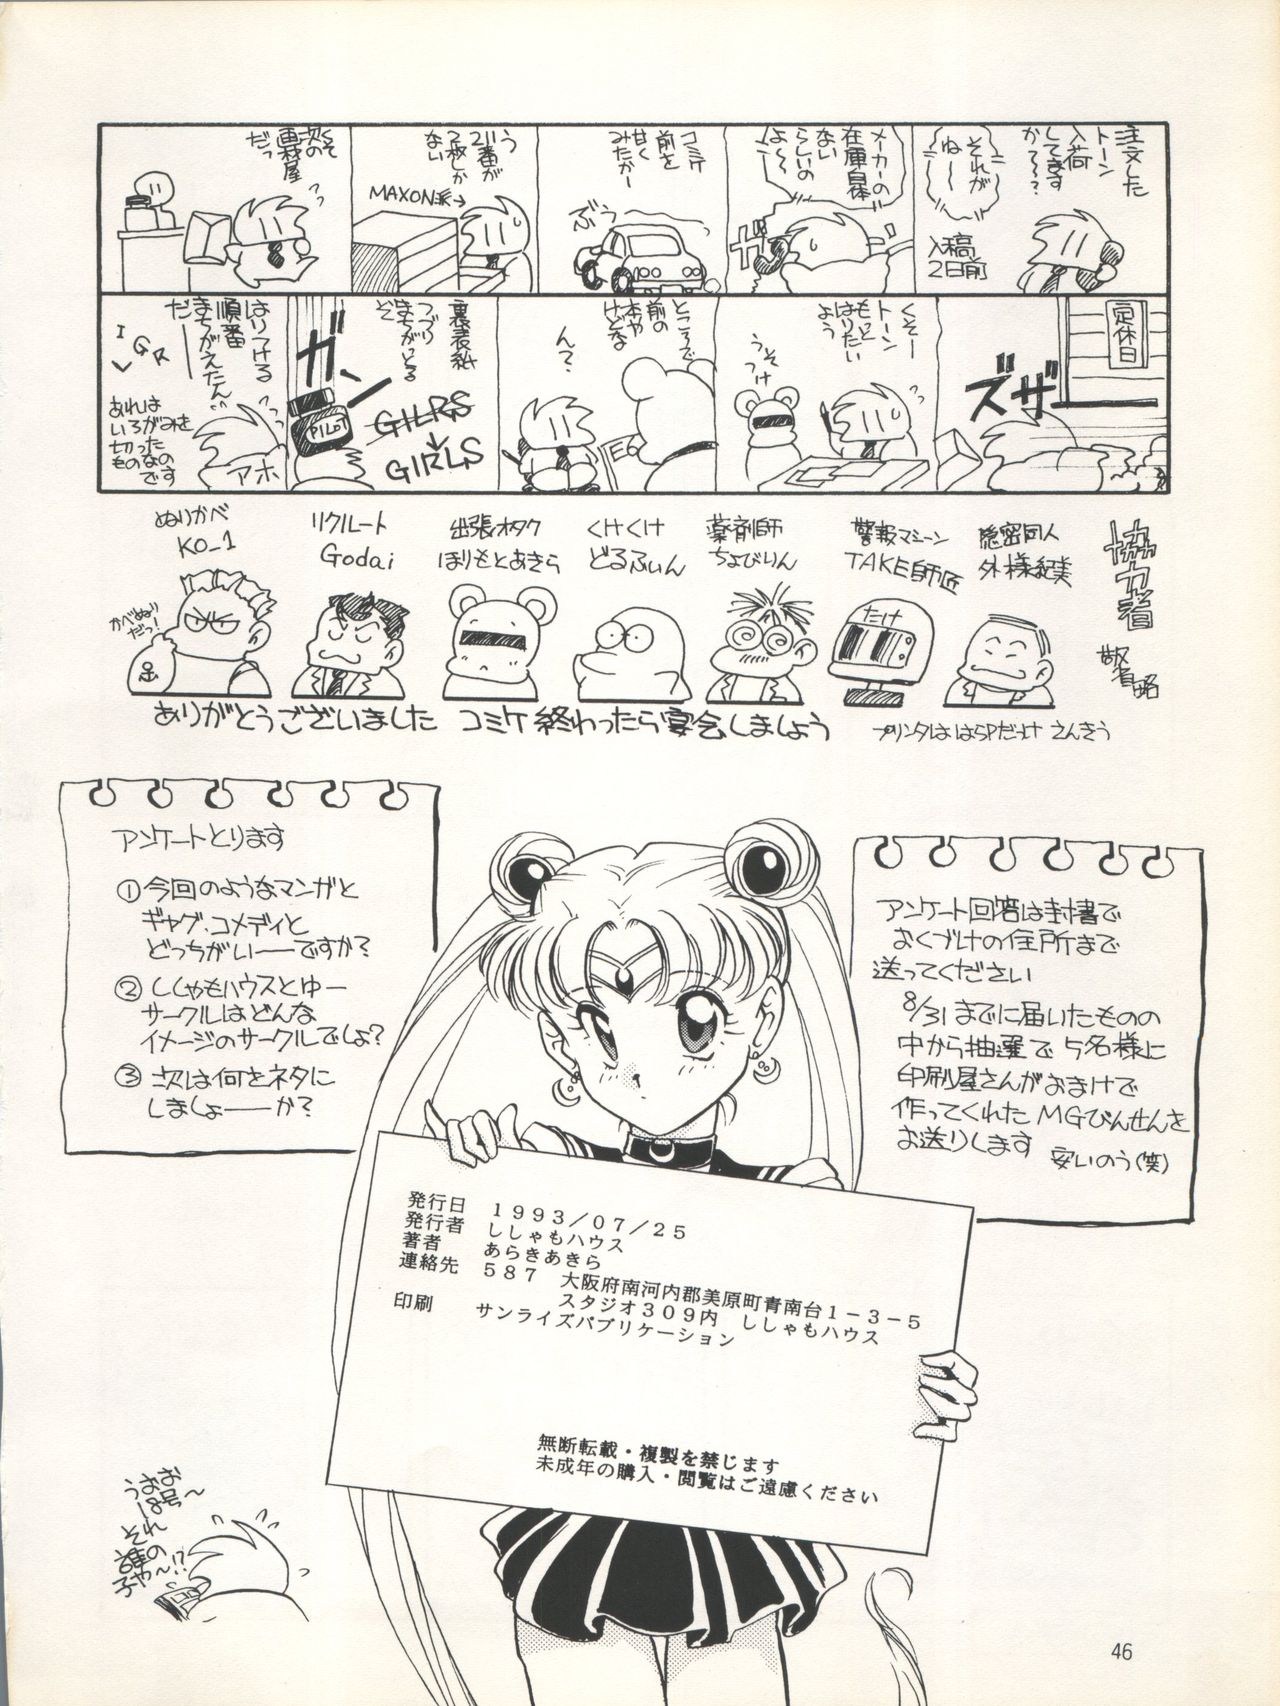 注文した
トーン
入荷
してます
か～～？
それが
ね～～
入稿
2日前
メーカーの
在庫自体
ない
らしいの
よ～～
ガーン
コミケ
前を
甘く
みたかー
ぶぅ
う
21番が
2枚しか
ない
MAXON派→
くそ
次の
画材屋
だっ
定休日
ズザーー
くそー
もっと
トーン
はりたい
よう
うそ
つけ
ところで
前の
本や
けどな
ん？
裏表紙
つづり
まちがっとる
ぞ
ガーン
PILOT
GILRS
GIRLS
はりつける
順番
まちがえたん
だー
I
G
R
L
あれは
いろがみを
切った
ものなの
です
アホ
協力者
敬省略
隠密同人
外様紀美
警報マシーン
TAKE師匠
たけ
薬剤師
ちょびりん
くけくけ
どるふぃん
出張オタク
ほりもとあきら
リクルート
Godai
ぬりかべ
KO_1
かべぬり
だっ！
ありがとうございました コミケ終わったら宴会しましょう
プリンタははらPだっけ さんきう
アンケートとります
①今回のようなマンガと
ギャグ、コメディと
どっちがい――ですか？
②ししゃもハウスとゆー
サークルはどんな
イメージのサークルでしょ？
③次は何をネタに
しましょ――か？
アンケート回答は封書で
おくづけの住所まで
送ってください
8/31までに届いたものの
中から抽選で5名様に
印刷屋さんがおまけで
作ってくれたMGびんせんを
お送りします 安いのう(笑)
発行日 １９９３／０７／２５
発行者 ししゃもハウス
著者 あらきあきら
連絡先 ５８７ 大阪府南河内郡美原町青南台１－３－５
スタジオ３０９内 ししゃもハウス
印刷 サンライズパブリケーション
無断転載・複製を禁じます
未成年の購入・閲覧はご遠慮ください
それ
誰の
子や～!?
46